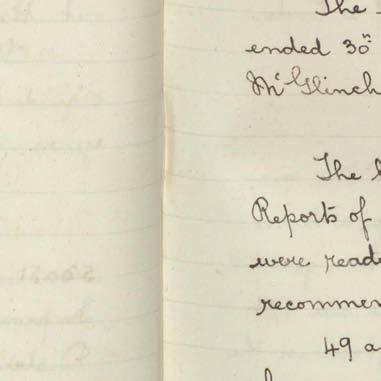 The
ended 30th
McGlinch
The
Reports of
were read
recommen
49 a